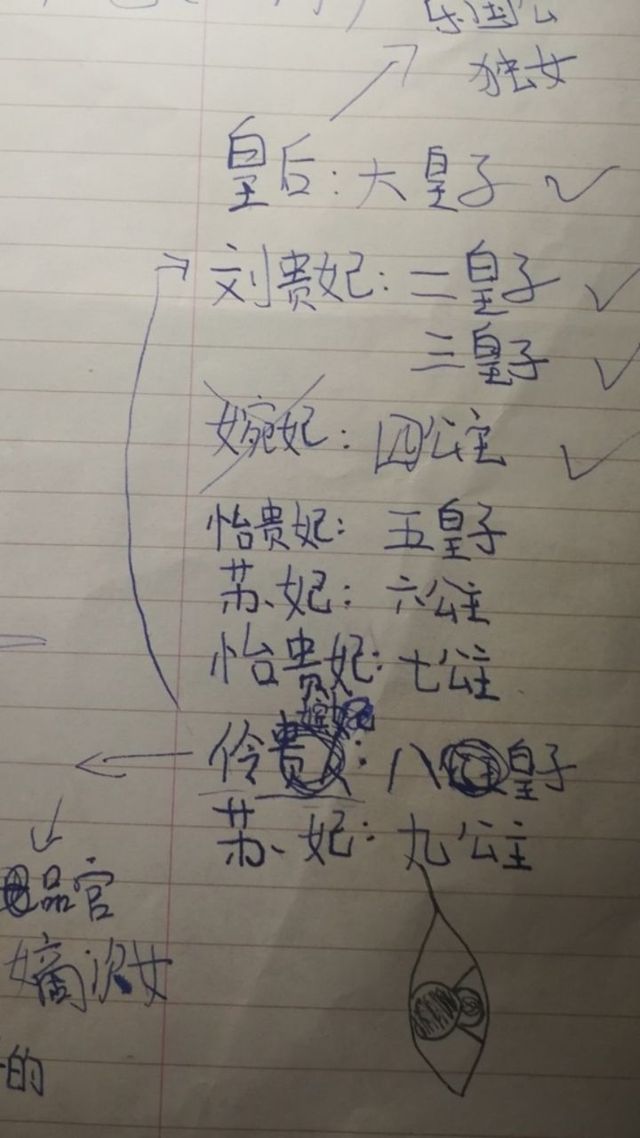 独女
皇后：大皇子
刘贵妃：二皇子
三皇子
婉妃：四公主
怡贵妃：五皇子
苏妃：六公主
怡贵妃：七公主
伶贵：八皇子
苏妃：九公主
品官
嫡次女
的